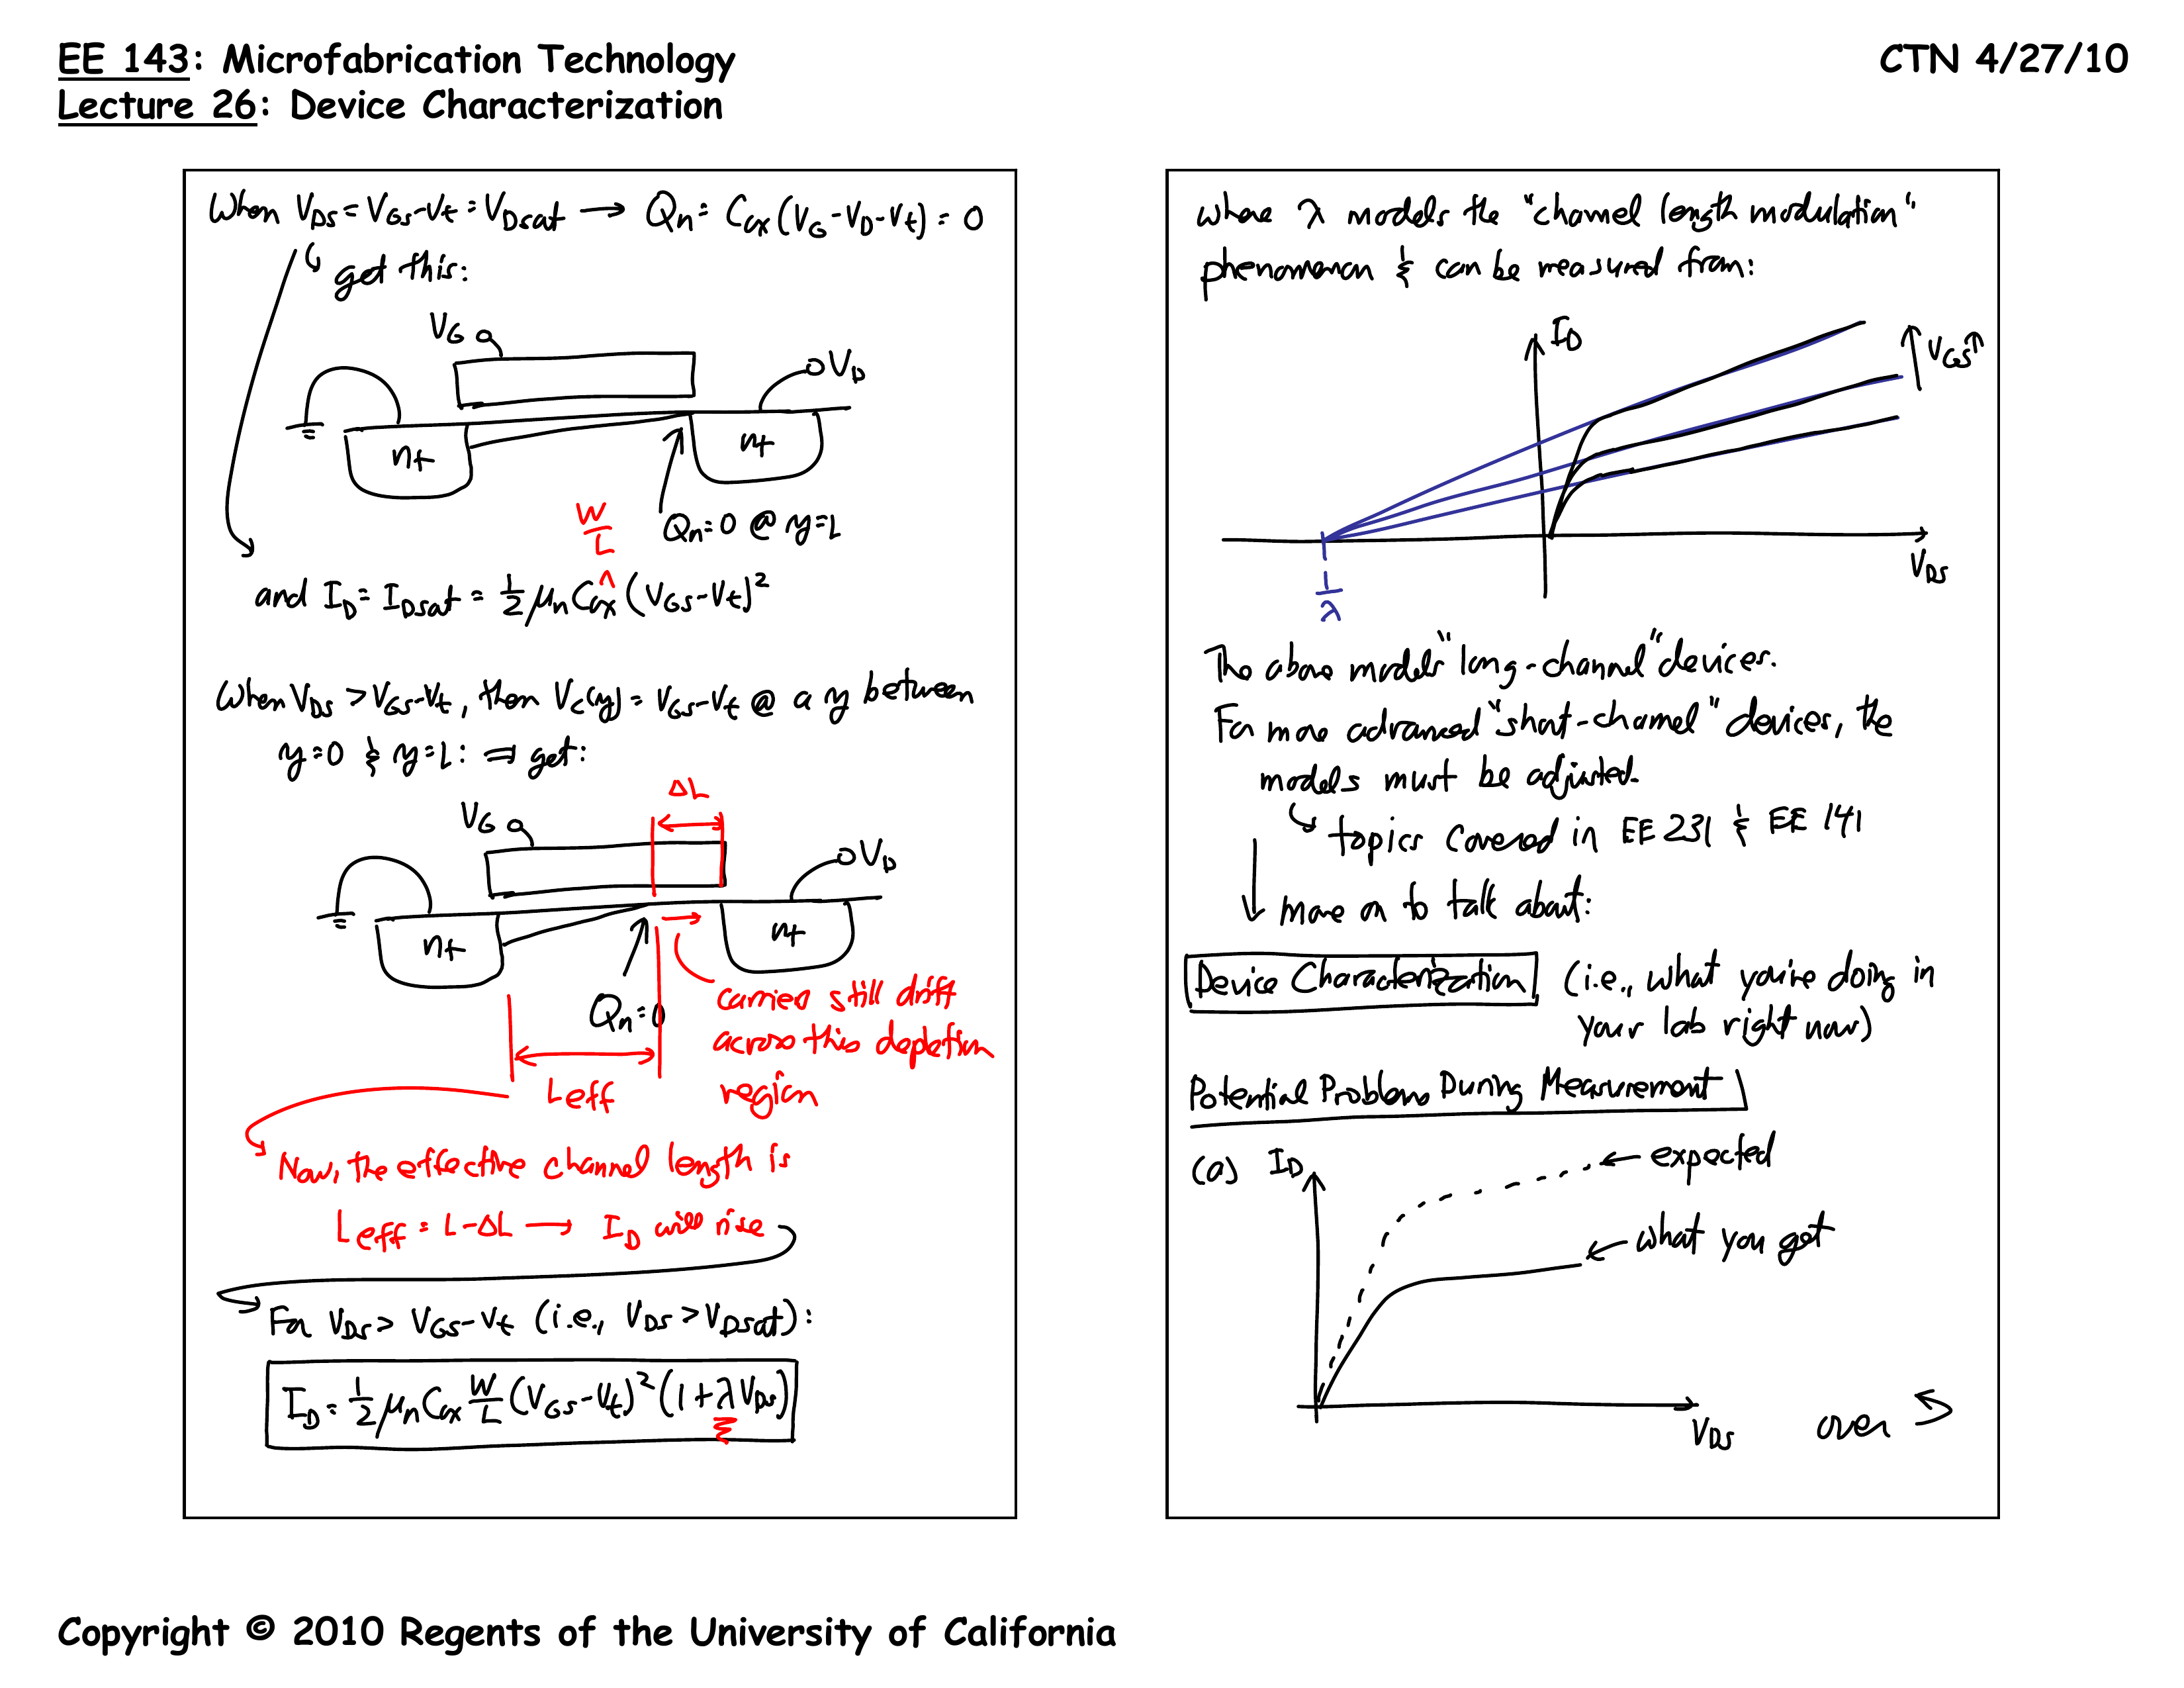 EE 143: Microfabrication Technology
CTN 4/27/10
Lecture 26: Device Characterization
When VDS = VGS-Vt = VDsat → Qn = Cox (VG-VD-Vt) = 0
get this:
VG
VD
n+
n+
W/L
Qn=0 @ y=L
and ID = IDsat = 1/2 μn Cox ^ (VGS-Vt)²
When VDS > VGS-Vt, then Vc(y) = VGS-Vt @ a y between
y=0 & y=L: ⇒ get:
ΔL
VG
VD
n+
n+
Qn=0
carriers still drift
across this depletion
region
Leff
Now, the effective channel length is
Leff = L-ΔL → ID will rise
For VDS > VGS-Vt (i.e., VDS > VDsat):
ID = 1/2 μn Cox W/L (VGS-Vt)² (1+λVDS)
where λ models the "channel length modulation"
phenomenon & can be measured from:
ID
VGS↑
VDS
1/λ
The above models "long-channel" devices.
For more advanced "short-channel" devices, the
models must be adjusted.
topics covered in EE 231 & EE 141
move on to talk about:
Device Characterization (i.e., what you're doing in
your lab right now)
Potential Problems During Measurement
(a) ID
expected
what you get
VDS
over
Copyright © 2010 Regents of the University of California